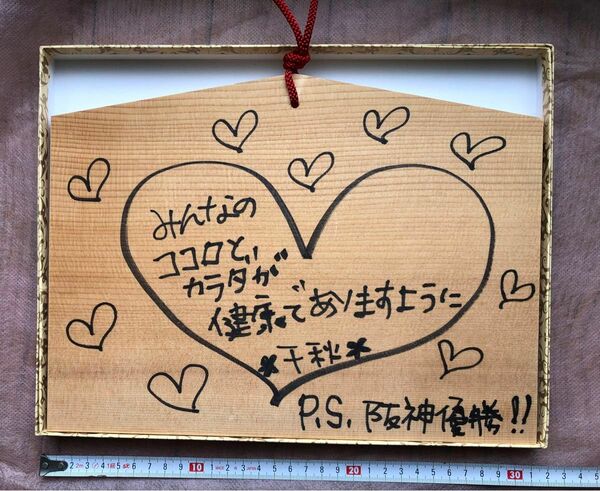 みんなの
ココロと
カラダが
健康でありますように
*千秋*
P.S. 阪神優勝!!
10
20
30